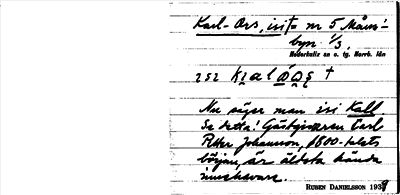 Karl-Ors, isi = nr 5 Måns-
byn 1/3.
Nederkalix sn o. tg. Norrb. län
252
Nu säger man isi Kall
Se detta! Gästgivaren Carl
Petter Johansson, 1800-talets
början, är äldsta kända
innehavare.
RUBEN DANIELSSON 1939